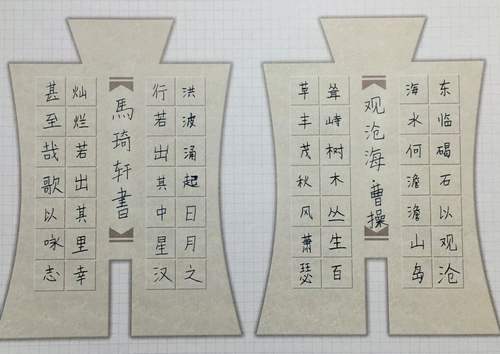 东临碣石以观沧
海水何澹澹山岛
观沧海·曹操
耸峙树木丛生百
草丰茂秋风萧瑟
洪波涌起日月之
行若出其中星汉
馬琦轩書
灿烂若出其里幸
甚至哉歌以咏志